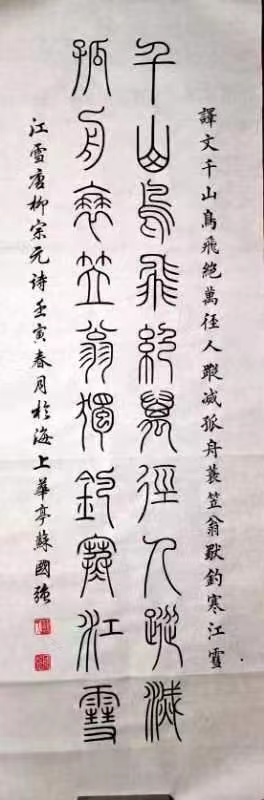 譯文千山鳥飛絕萬徑人蹤滅孤舟蓑笠翁獨釣寒江雪
千山鳥飛絕萬徑人蹤滅
孤舟蓑笠翁獨釣寒江雪
江雪唐柳宗元诗壬寅春月於海上華亭蘇國强